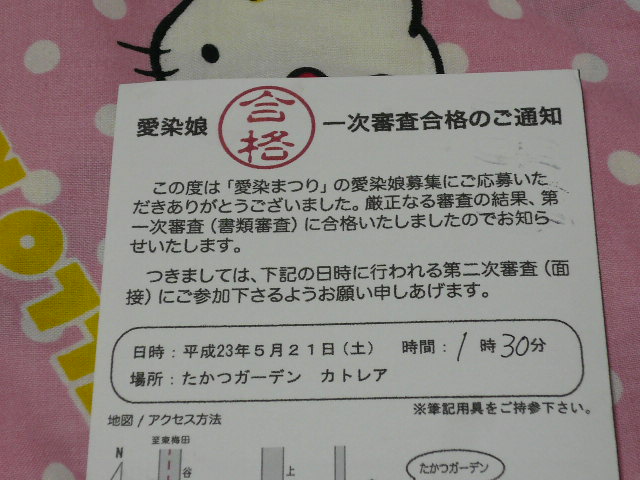 愛染娘 合格 一次審査合格のご通知
この度は「愛染まつり」の愛染娘募集にご応募いた
だきありがとうございました。厳正なる審査の結果、第
一次審査（書類審査）に合格いたしましたのでお知ら
せいたします。
つきましては、下記の日時に行われる第二次審査（面
接）にご参加下さるようお願い申しあげます。
日時：平成23年5月21日（土） 時間：1時30分
場所：たかつガーデン カトレア
※筆記用具をご持参下さい。
地図 / アクセス方法
至東梅田
N
谷
上
たかつガーデン